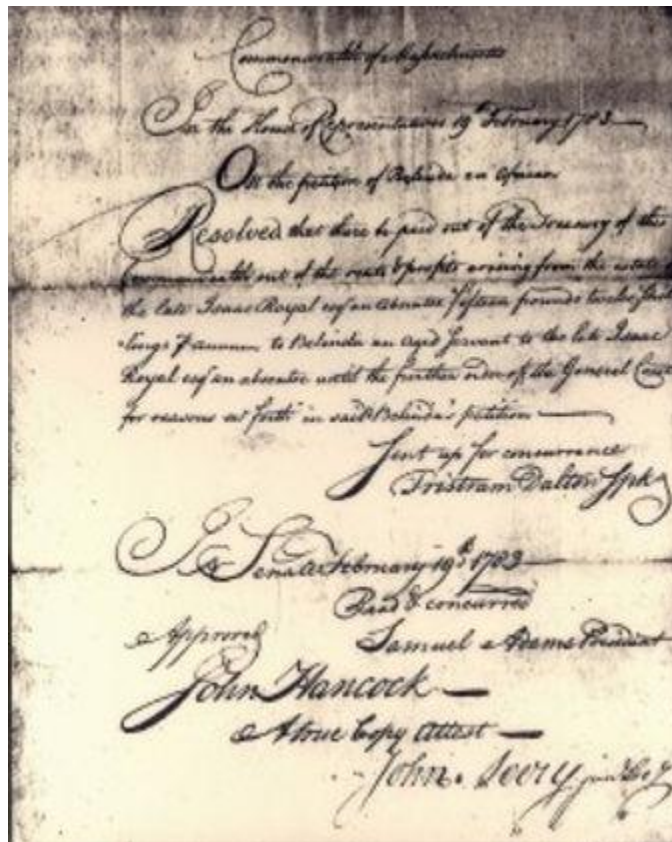 Commonwealth of Massachusetts
In the House of Representatives 19th February 1783
On the petition of Belinda an African
Resolved that there be paid out of the Treasury of this
Commonwealth out of the rents & profits arising from the estate of
the late Isaac Royal esqr an absentee fifteen pounds twelve shil
lings p annum to Belinda an aged servant to the late Isaac
Royal esqr an absentee until the further order of the General Court
for reasons set forth in said Belinda's petition
Sent up for concurrance
Tristram Dalton Spkr
In Senate February 19th 1783
Read & concurred
Approved Samuel Adams President
John Hancock
A true Copy Attest
John Avery junr Secy